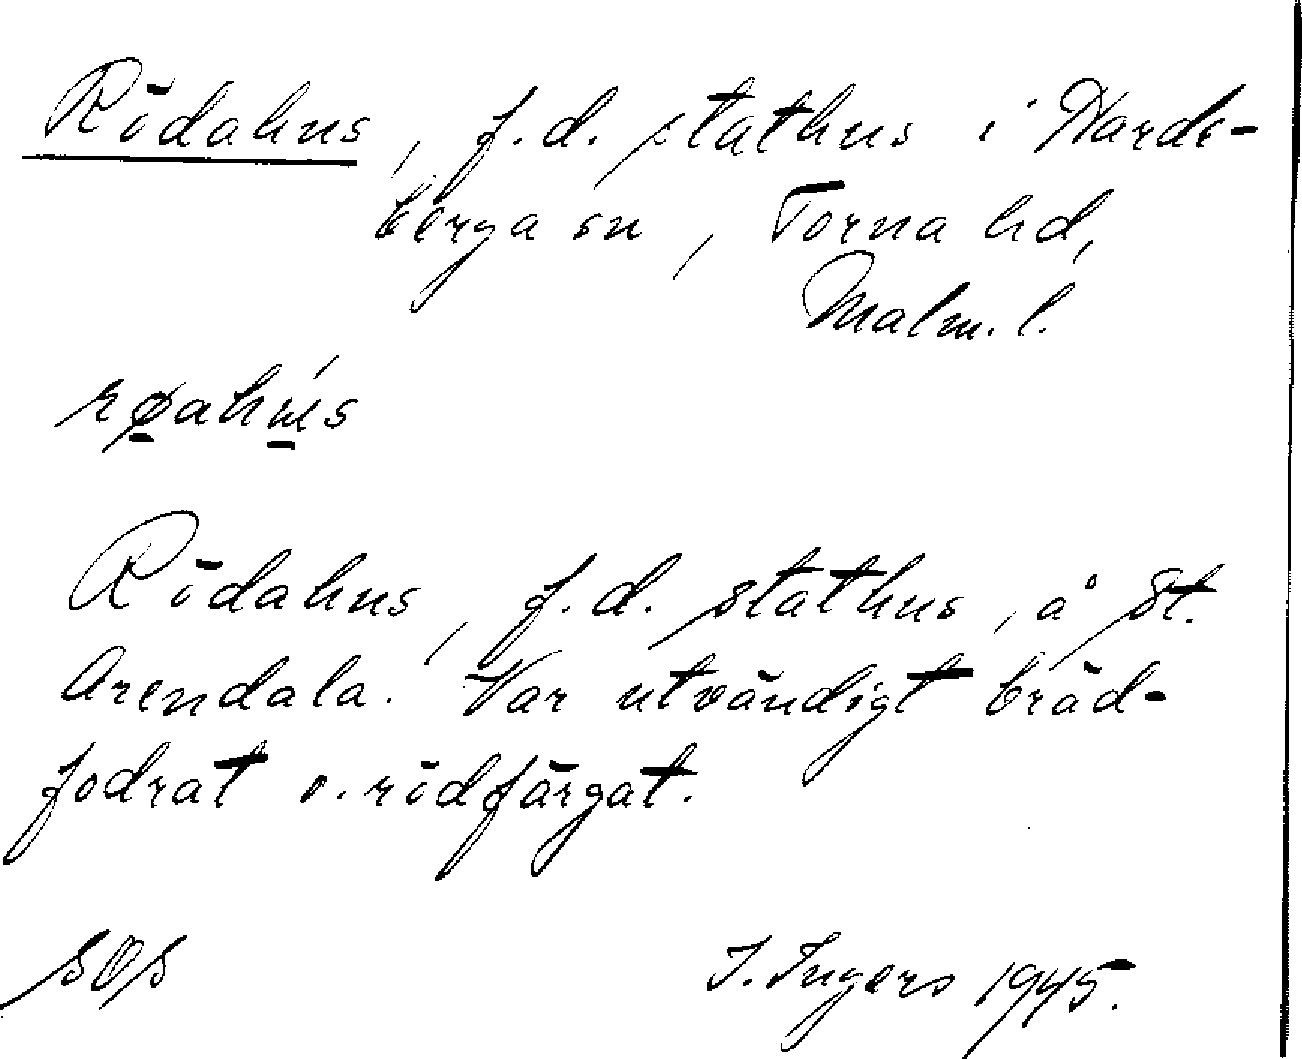 Rödahus, f.d. stathus i Hards-
berga sn, Torna hd,
Malm. l.
Rödahus, f.d. stathus, å St.
Arendala. Var utvändigt bräd-
fodrat o. rödfärgat.
SOS I. Ingers 1945.